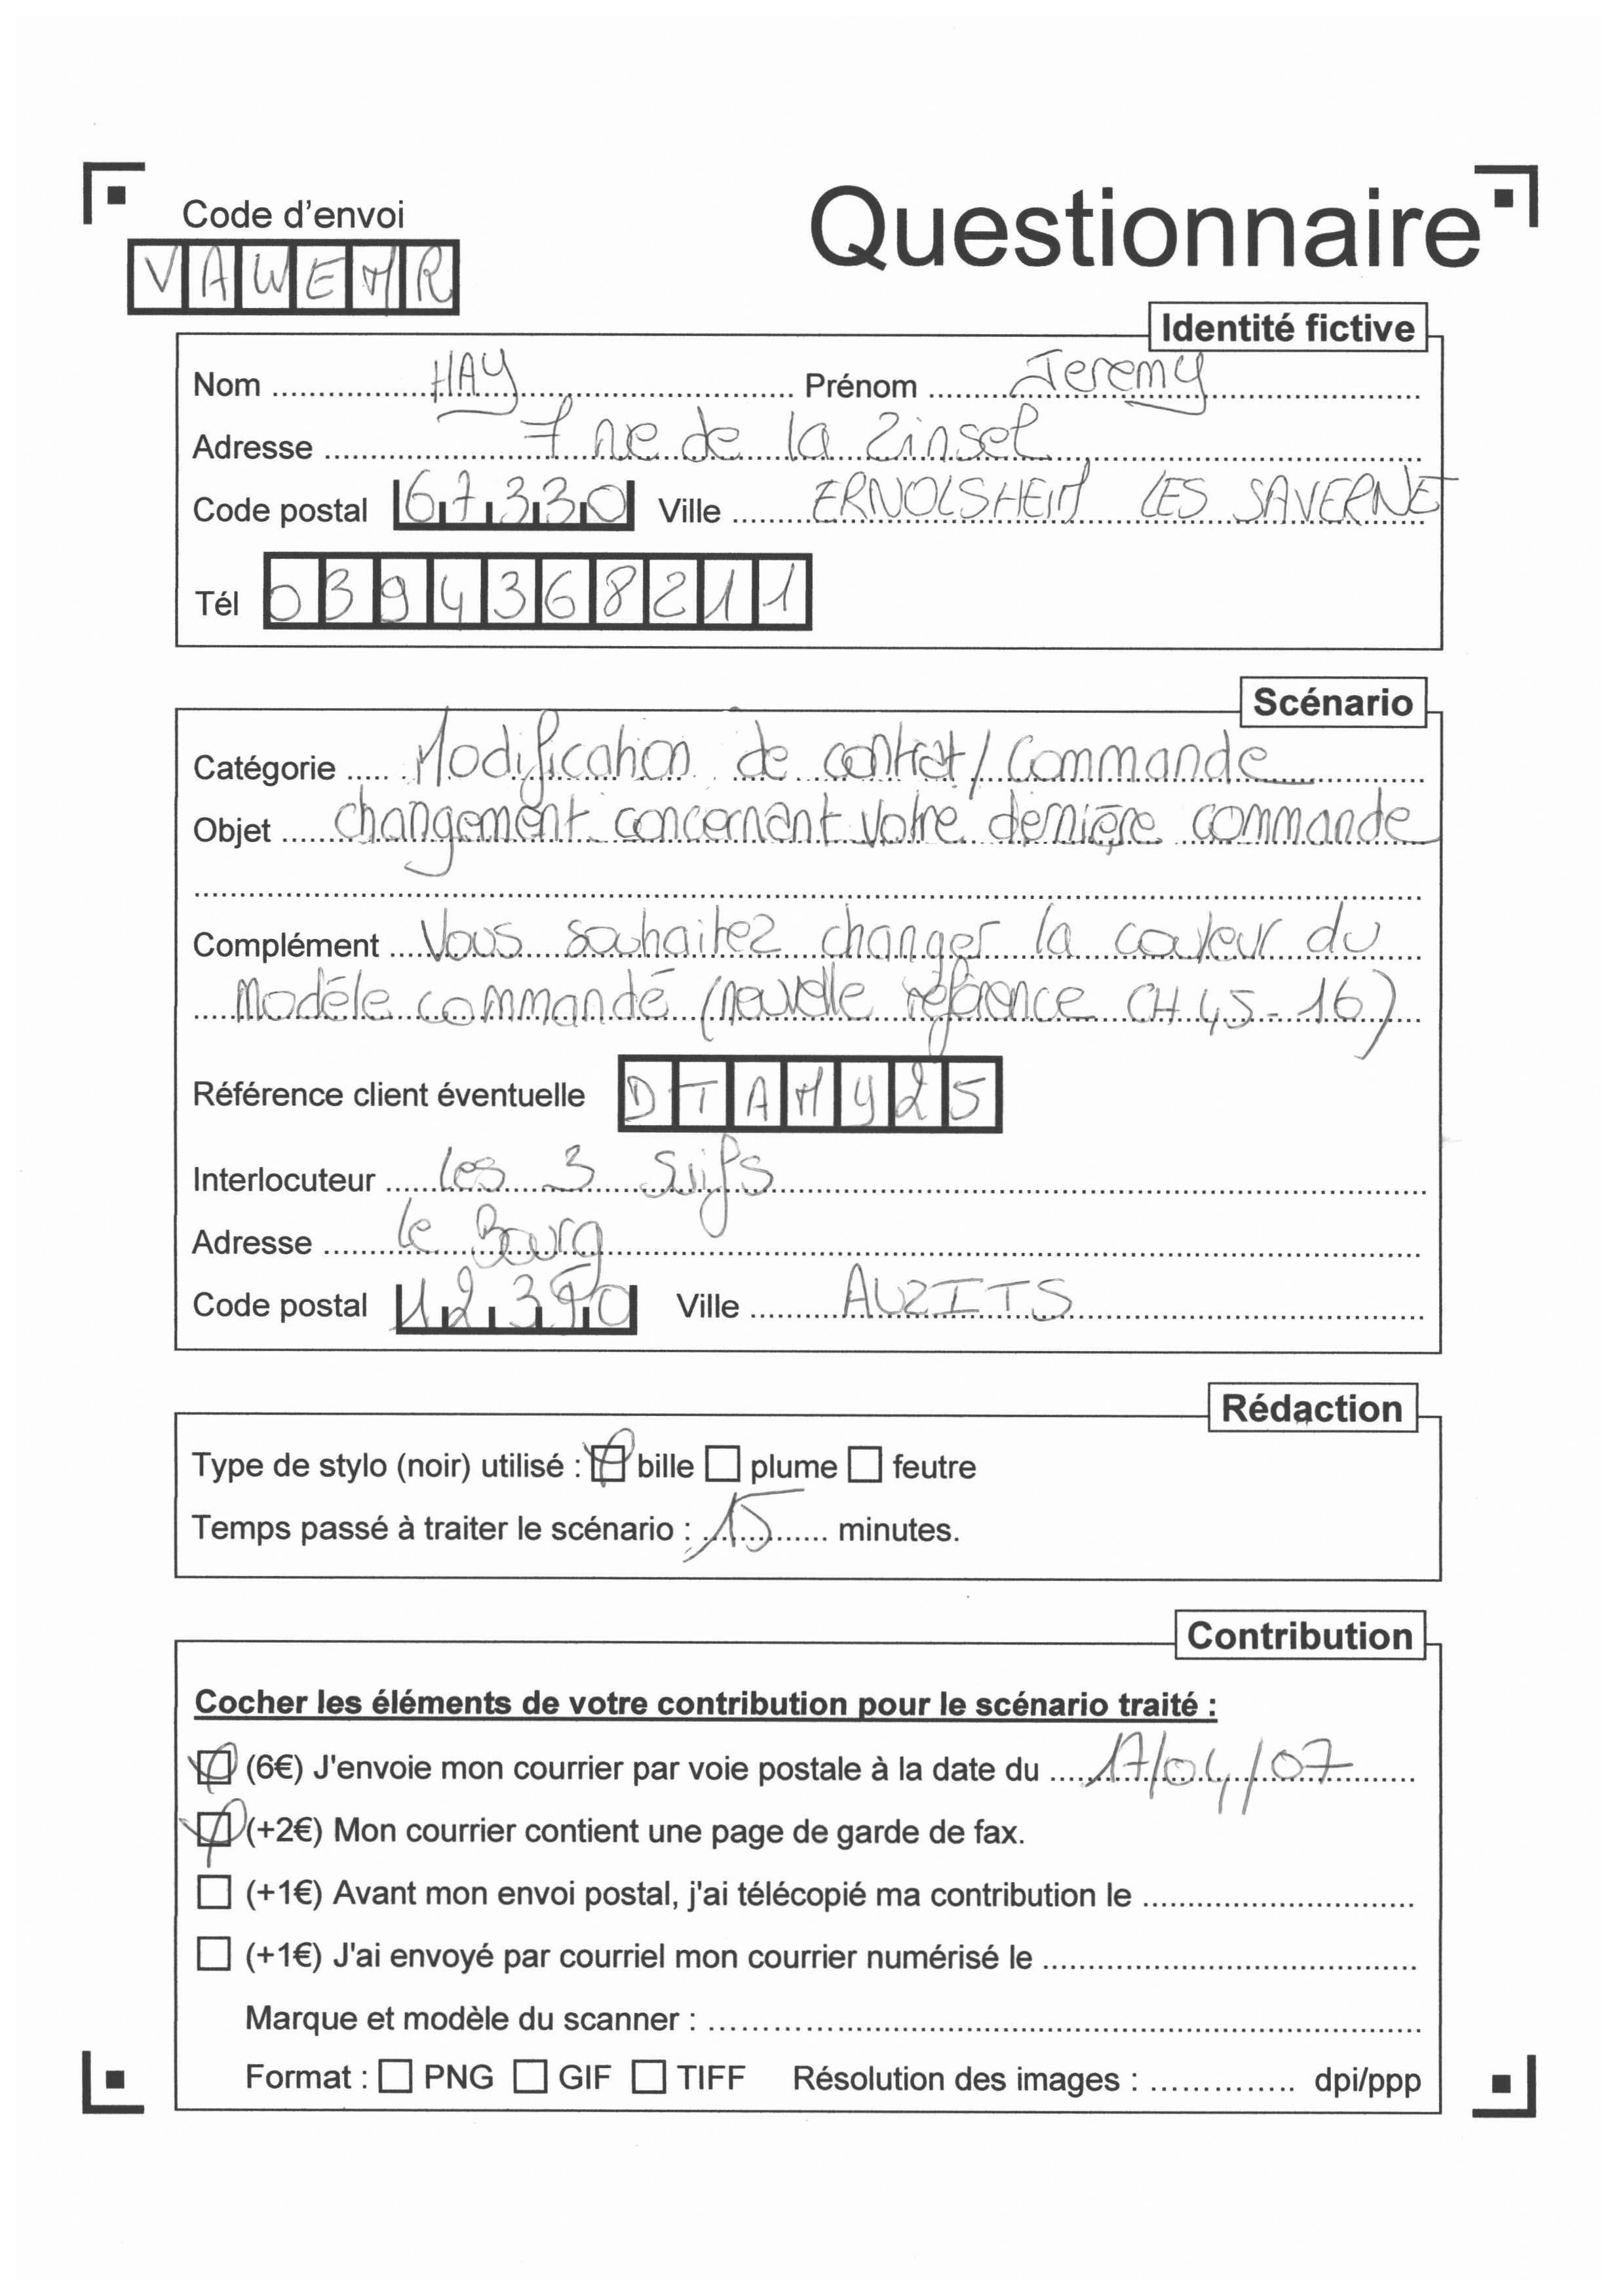 Code d'envoi
Questionnaire
VAWEMR
Identité fictive
Nom HAY Prénom Jeremy
Adresse 7 rue de la Zinsel
Code postal 67330 Ville ERNOLSHEIM LES SAVERNE
Tél 0394368211
Scénario
Catégorie Modification de contrat / Commande
Objet changement concernant votre dernière commande
Complément Vous souhaitez changer la couleur du
modèle commandé (nouvelle référence CH 45-16)
Référence client éventuelle DTAMY25
Interlocuteur les 3 Suifs
Adresse le Bourg
Code postal 12390 Ville AUZITS
Rédaction
Type de stylo (noir) utilisé : bille plume feutre
Temps passé à traiter le scénario : 15 minutes.
Contribution
Cocher les éléments de votre contribution pour le scénario traité :
(6€) J'envoie mon courrier par voie postale à la date du 17/04/07
(+2€) Mon courrier contient une page de garde de fax.
(+1€) Avant mon envoi postal, j'ai télécopié ma contribution le
(+1€) J'ai envoyé par courriel mon courrier numérisé le
Marque et modèle du scanner :
Format : PNG GIF TIFF Résolution des images : dpi/ppp